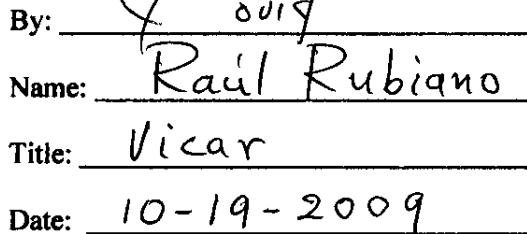 By:
Name: Raúl Rubiano
Title: Vicar
Date: 10-19-2009